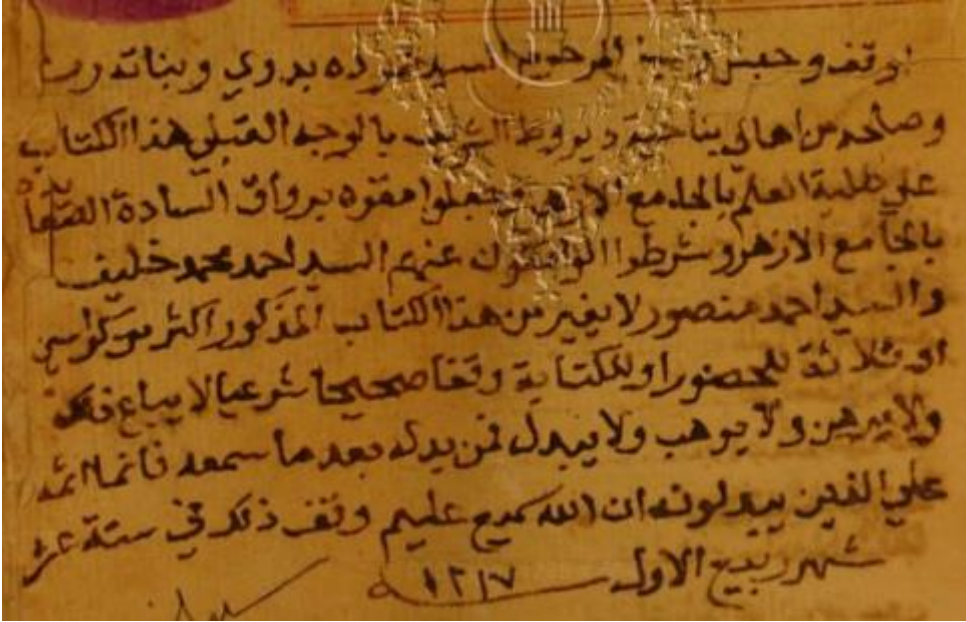 اوقف وحبس المرحوم السيد بدوي وبناته
وصاحد من اهالي بناحية ديروط الشريف بالوجه القبلي هذا الكتاب
علي طلبة العلم بالجامع الازهر وجعلوا مقره برواق السادة
بالجامع الازهر وشرطوا عنهم السيد احمد محمد خليف
والسيد احمد منصور لا يغير من هذا الكتاب المذكور اكثر من كراسين
او ثلاثة للحضور او للكتابة وقفا صحيحا شرعيا لا يباع
ولا يرهن ولا يوهب ولا يبدل فمن بدله بعد ما سمعه فانما اثمه
علي الذين يبدلونه ان الله سميع عليم وقف ذلك في ستة عشر
شهر ربيع الاول